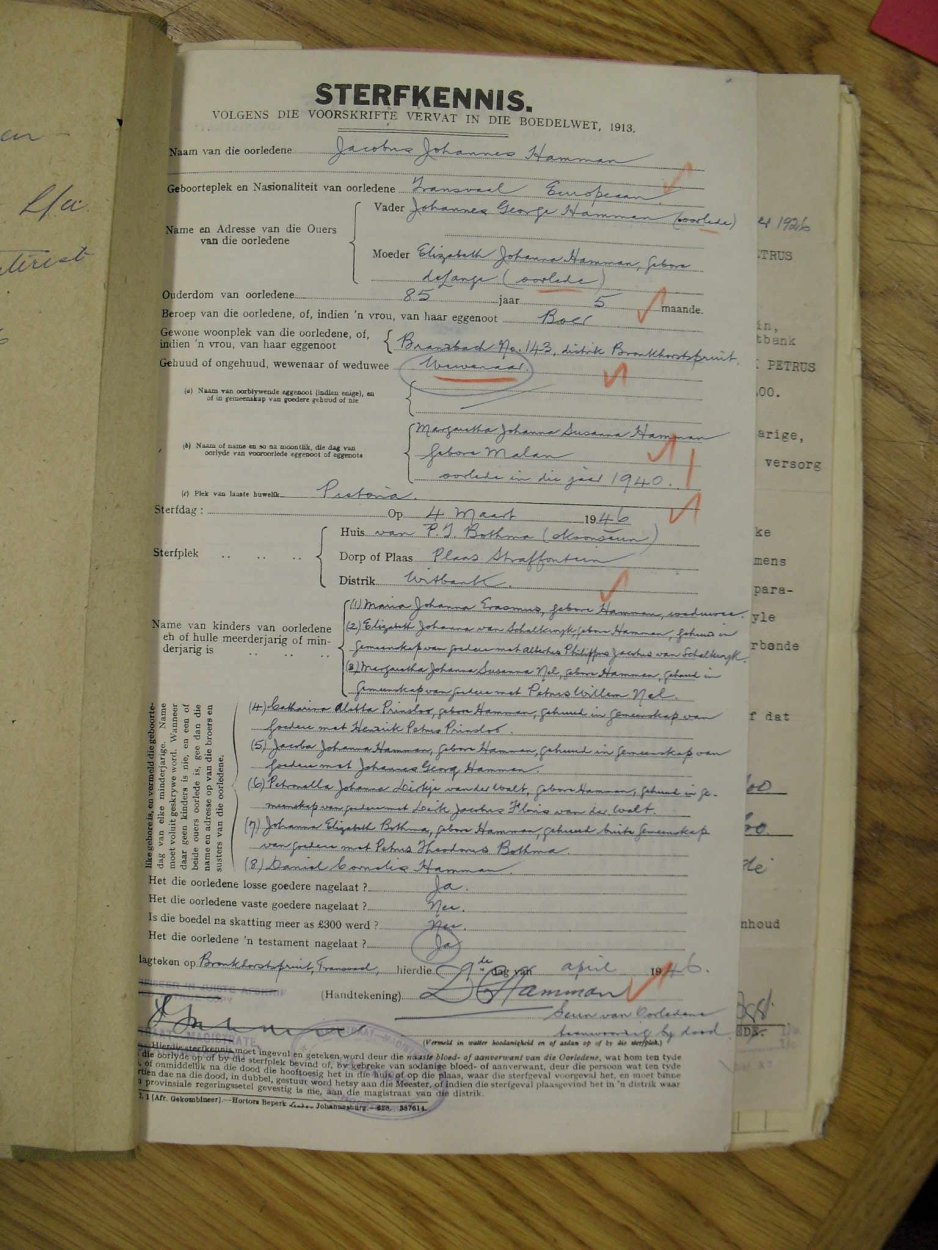 STERFKENNIS.
VOLGENS DIE VOORSKRIFTE VERVAT IN DIE BOEDELWET, 1913.
Naam van die oorledene Jacobus Johannes Hamman
Geboorteplek en Nasionaliteit van oorledene Transvaal European
Name en Adresse van die Ouers van die oorledene
Vader Johannes George Hamman (oorlede)
Moeder Elizabeth Johanna Hamman, gebore
deLange (oorlede)
Ouderdom van oorledene 85 jaar 5 maande.
Beroep van die oorledene, of, indien 'n vrou, van haar eggenoot Boer
Gewone woonplek van die oorledene, of,
indien 'n vrou, van haar eggenoot
No. 143, distrik Bronkhorstspruit
Gehuud of ongehuud, wewenaar of weduwee Wewenaar
(a) Naam van oorblywende eggenoot (indien enige), en
of in gemeenskap van goedere gehuud of nie
(b) Naam of name en so na moontlik, die dag van
oorlyde van vooroorlede eggenoot of eggenote
Margaretha Johanna Susanna Hamman
gebore Malan
oorlede in die jaar 1940.
(c) Plek van laaste huwelik Pretoria.
Sterfdag : Op 4 Maart 1946
Sterfplek
Huis van P.T. Bothma (skoonseun)
Dorp of Plaas Plaas Straffontein
Distrik Witbank.
Name van kinders van oorledene
eh of hulle meerderjarig of min-
derjarig is
(1) Maria Johanna Erasmus, gebore Hamman, weduwee.
(2) Elizabeth Johanna van Schalkwyk, gebore Hamman, gehuud in
gemeenskap van goedere met Philippus Jacobus van Schalkwyk.
(3) Margaretha Johanna Susanna Nel, gebore Hamman, gehuud in
gemeenskap van goedere met Petrus Willem Nel.
like gebore is, en vermeld die geboorte-
dag van elke minderjarige. Name
moet voluit geskrywe word. Wanneer
daar geen kinders is nie, en een of
beide ouers oorlede is, gee dan die
name en adresse op van die broers en
susters van die oorledene.
(4) Catharina Aletta Prinsloo, gebore Hamman, gehuud in gemeenskap van
goedere met Hendrik Petrus Prinsloo.
(5) Jacoba Johanna Hamman, gebore Hamman, gehuud in gemeenskap van
goedere met Johannes Georg Hamman.
(6) Petronella Johanna Dirkje van der Walt, gebore Hamman, gehuud in ge-
meenskap van goedere met Dirk Jacobus Floris van der Walt.
(7) Johanna Elizabeth Bothma, gebore Hamman, gehuud buite gemeenskap
van goedere met Petrus Theodorus Bothma.
(8) Daniel Cornelis Hamman.
Het die oorledene losse goedere nagelaat ? Ja.
Het die oorledene vaste goedere nagelaat ? Nee.
Is die boedel na skatting meer as £300 werd ? Nee.
Het die oorledene 'n testament nagelaat ? Ja
lagteken op Bronkhorstspruit, Transvaal, hierdie 9de dag van April 1946.
(Handtekening) D C Hamman
Seun van Oorledene
teenwoordig by dood
(Vermeld in watter hoedanigheid en of aedan op of by die sterfplek.)
Hierdie sterfkennis moet ingevul en geteken word deur die naaste bloed- of aanverwant van die Oorledene, wat hom ten tyde
die oorlyde op of by die sterfplek bevind of, by gebreke van sodanige bloed- of aanverwant, deur die persoon wat ten tyde
of onmiddellik na die dood die hooftoesig het in die huis of op die plaas, waar die sterfgeval voorgeval het, en moet binne
rtien dae na die dood, in dubbel, gestuur word hetsy aan die Meester, of indien die sterfgeval plaasgevind het in 'n distrik waar
n provinsiale regeringsetel gevestig is nie, aan die magistraat van die distrik.
1 (Afr. Gekombineer).—Hortors Beperk Johannesburg.—628. 387614.
1926
TRUS
in,
tbank
PETRUS
00.
arige,
versorg
ke
mens
para-
yle
rbende
f dat
nhoud